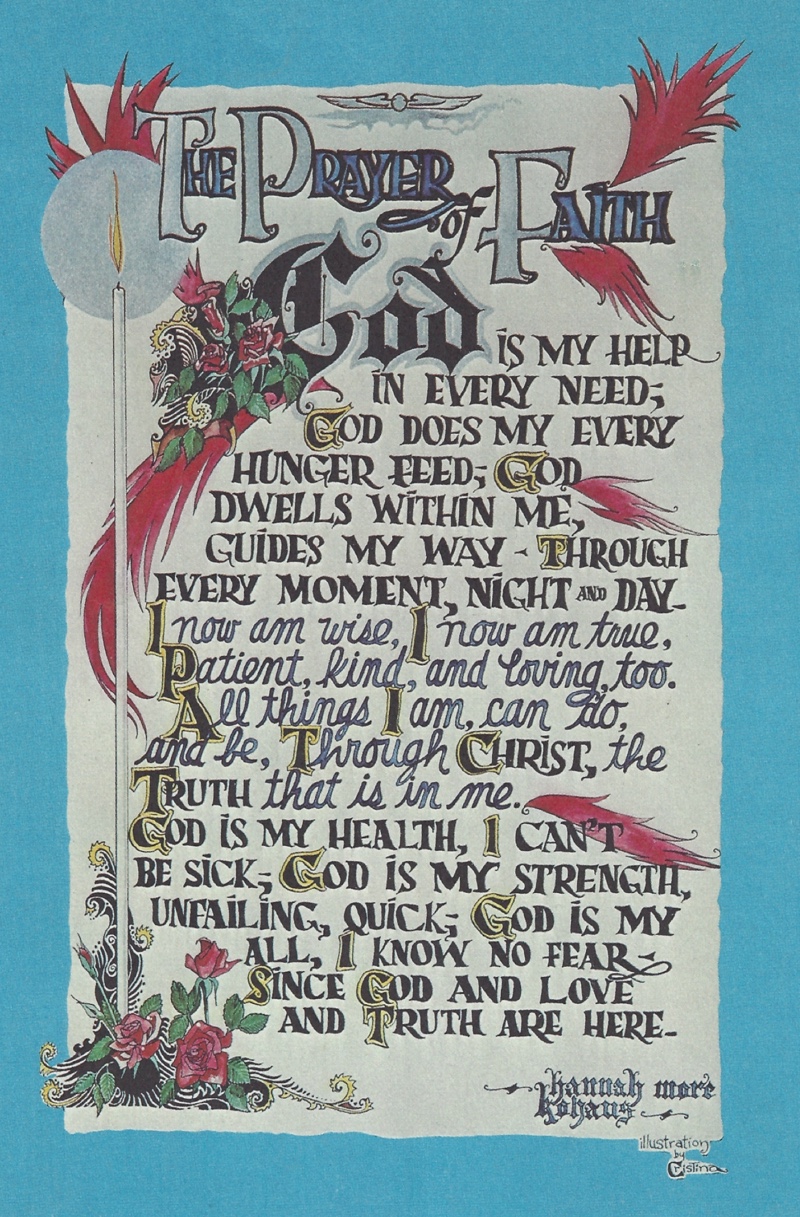 THE PRAYER of FAITH
God IS MY HELP
IN EVERY NEED;
GOD DOES MY EVERY
HUNGER FEED; GOD
DWELLS WITHIN ME,
GUIDES MY WAY - THROUGH
EVERY MOMENT, NIGHT AND DAY-
I now am wise, I now am true,
Patient, kind, and loving, too.
All things I am, can do,
and be, Through CHRIST, the
TRUTH that is in me.
GOD IS MY HEALTH, I CAN'T
BE SICK; GOD IS MY STRENGTH,
UNFAILING, QUICK; GOD IS MY
ALL, I KNOW NO FEAR-
SINCE GOD AND LOVE
AND TRUTH ARE HERE-
hannah more
kohaus
illustration
by
Cristina